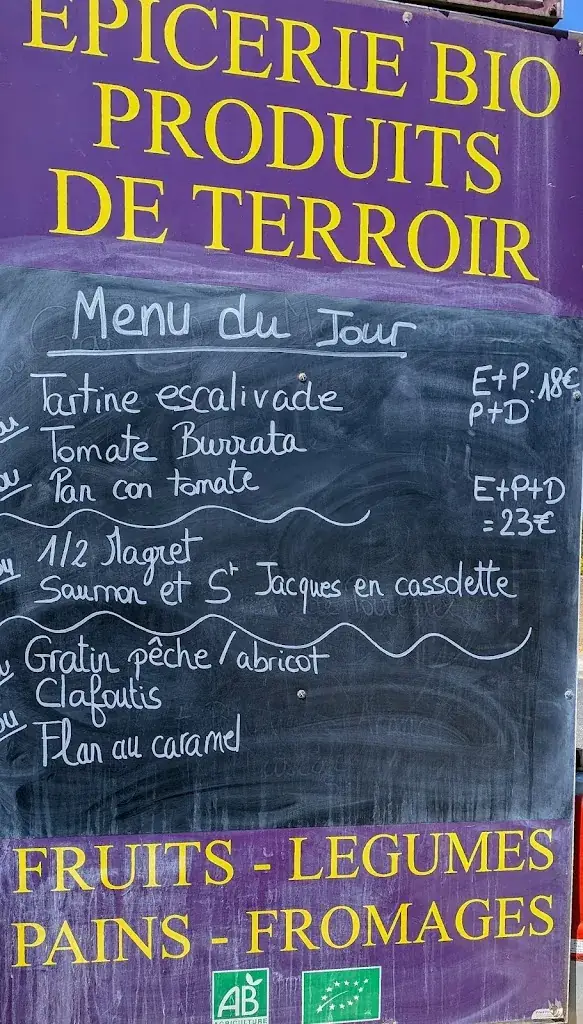 EPICERIE BIO
PRODUITS
DE TERROIR
Menu du Jour
Tartine escalivade
E+P 18€
P+D
ou Tomate Burrata
ou Pan con tomate
E+P+D
= 23€
1/2 Magret
ou Saumon et St Jacques en cassolette
Gratin pêche/abricot
ou Clafoutis
ou Flan au caramel
FRUITS - LEGUMES
PAINS - FROMAGES
AB
AGRICULTURE